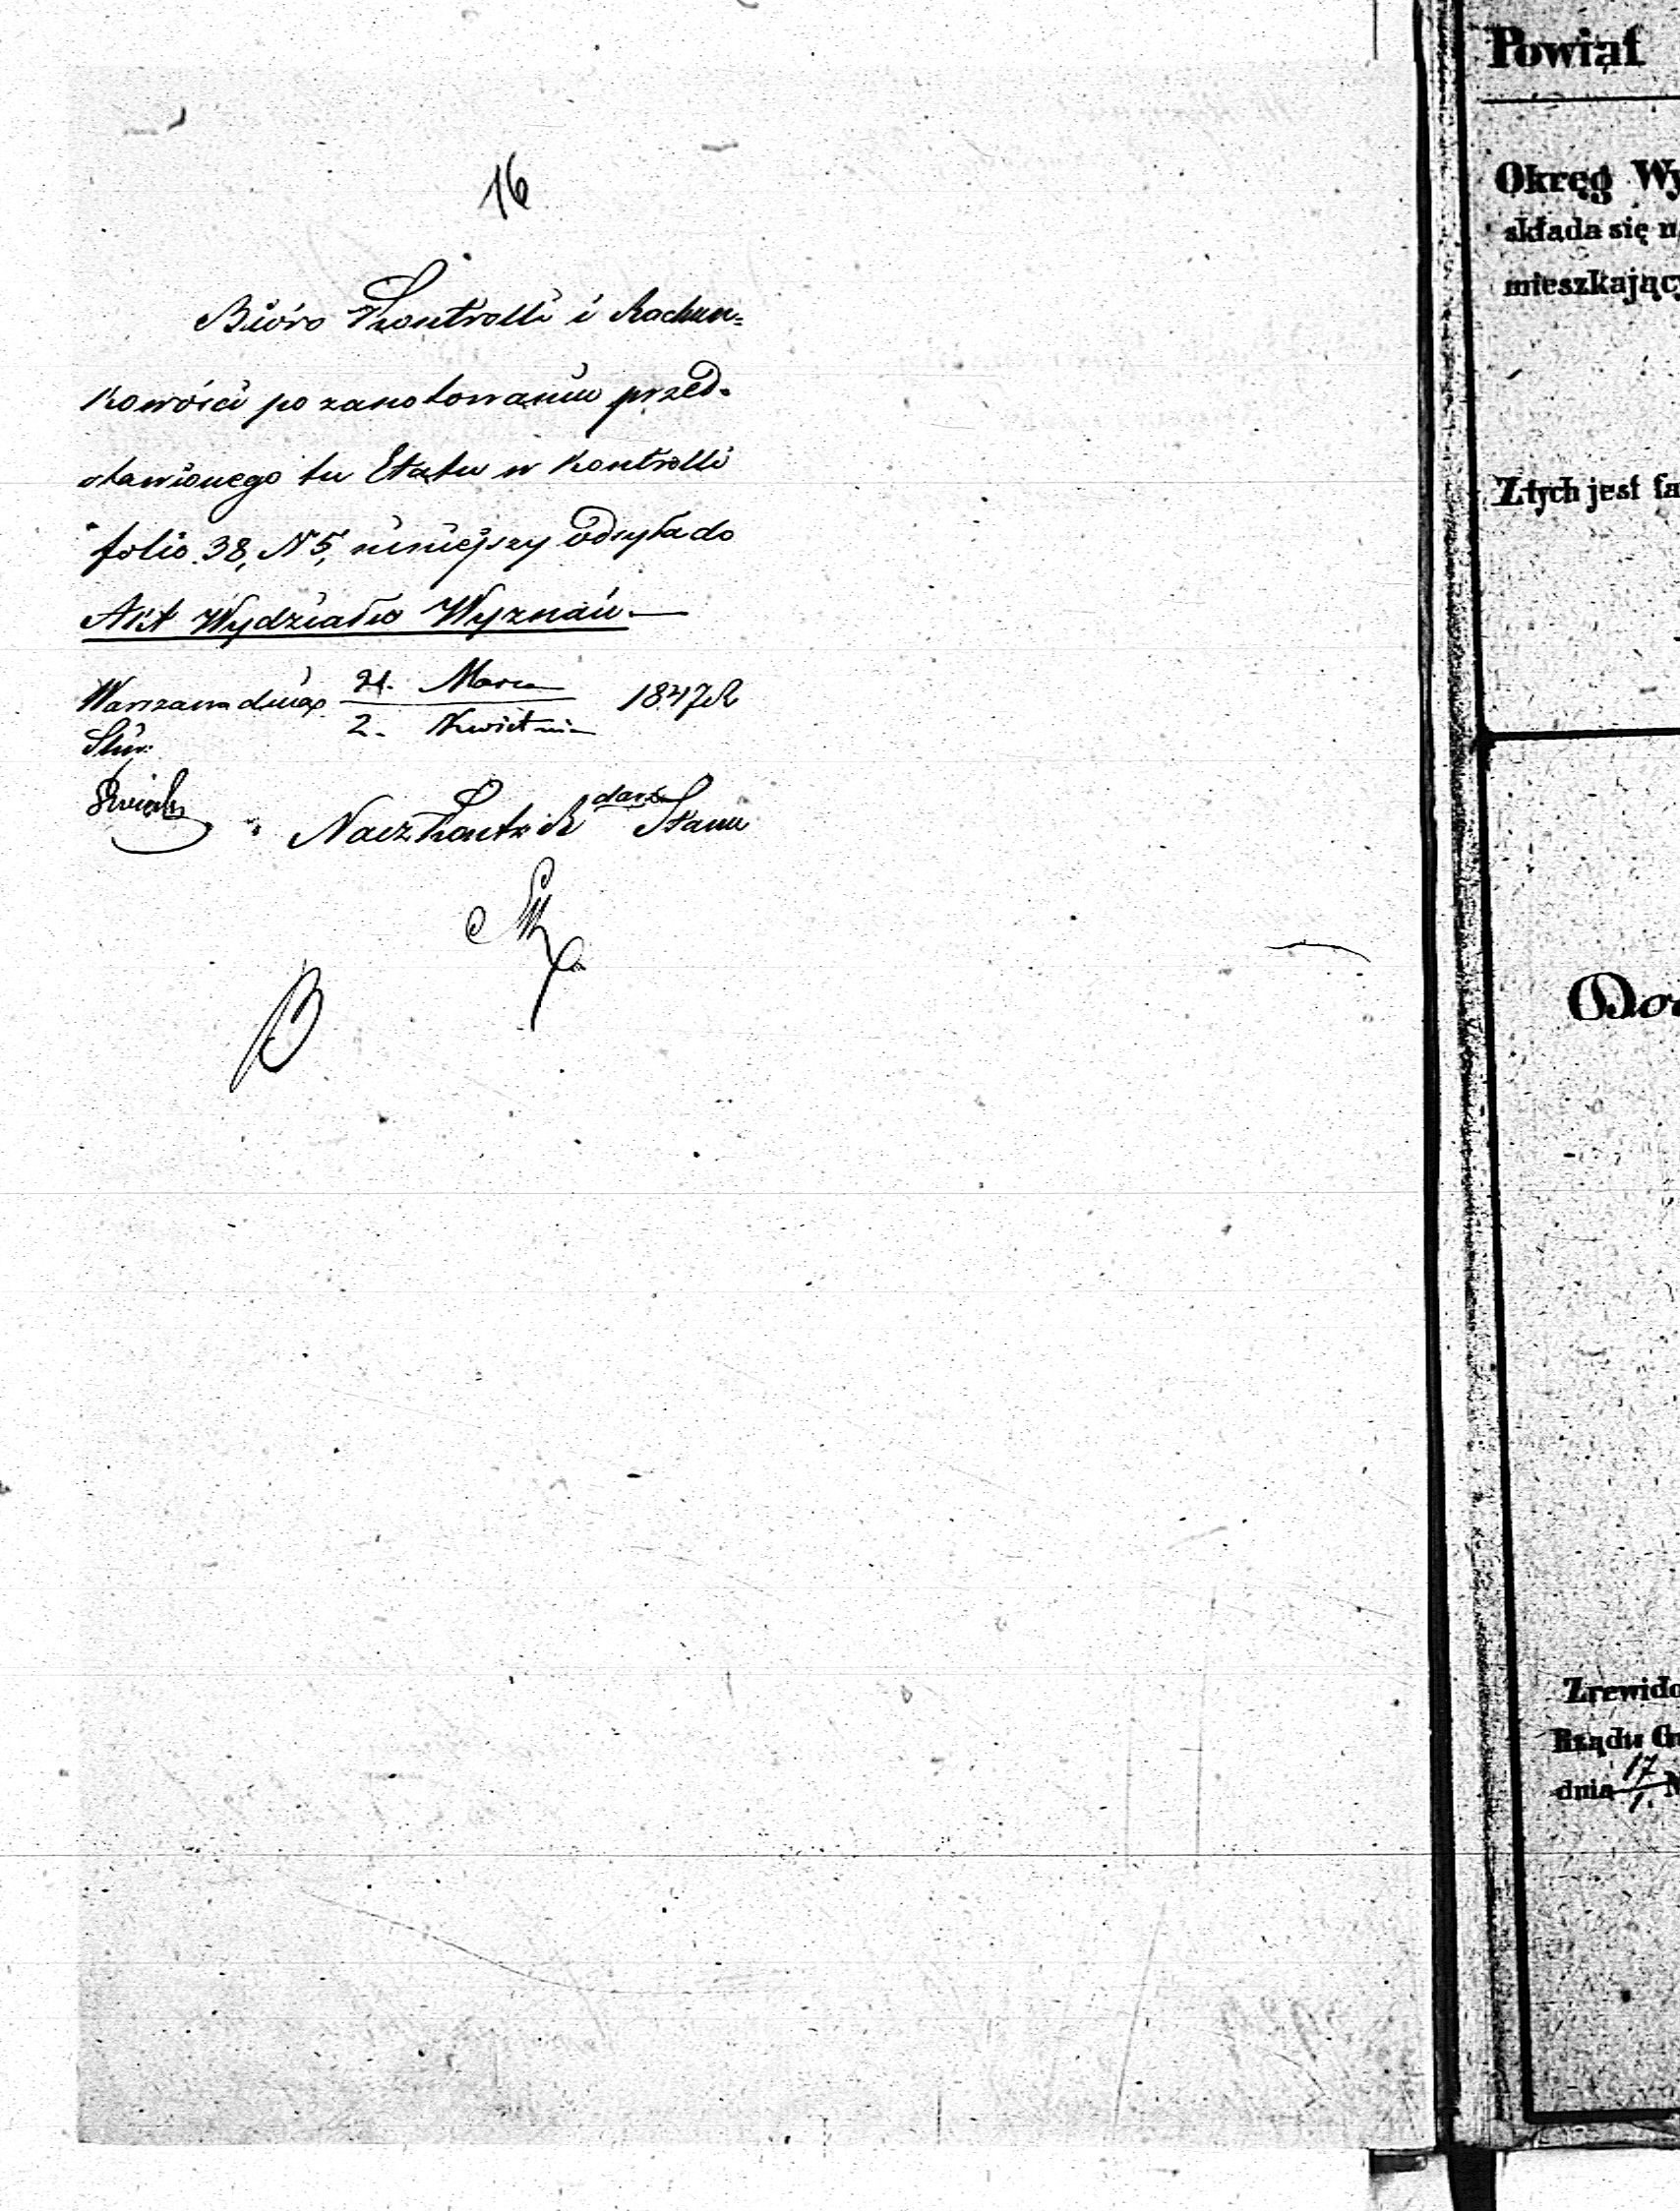 16
Bióro Kontrolli i Rachun=
kowości po zanotowaniu przed-
stawionego tu Etatu w Kontrolli
folio 38, N 5, niniejszy odsyła do
Akt Wydziału Wyznań.—
Warszawa dnia 21. Marca 1847 R
2. Kwietnia
Nacz Kontr R Stanu
Powiat
Okręg Wy
składa się n
mieszkając
Z tych jest fa
Zrewido
Rządu Gu
dnia 17/1. M